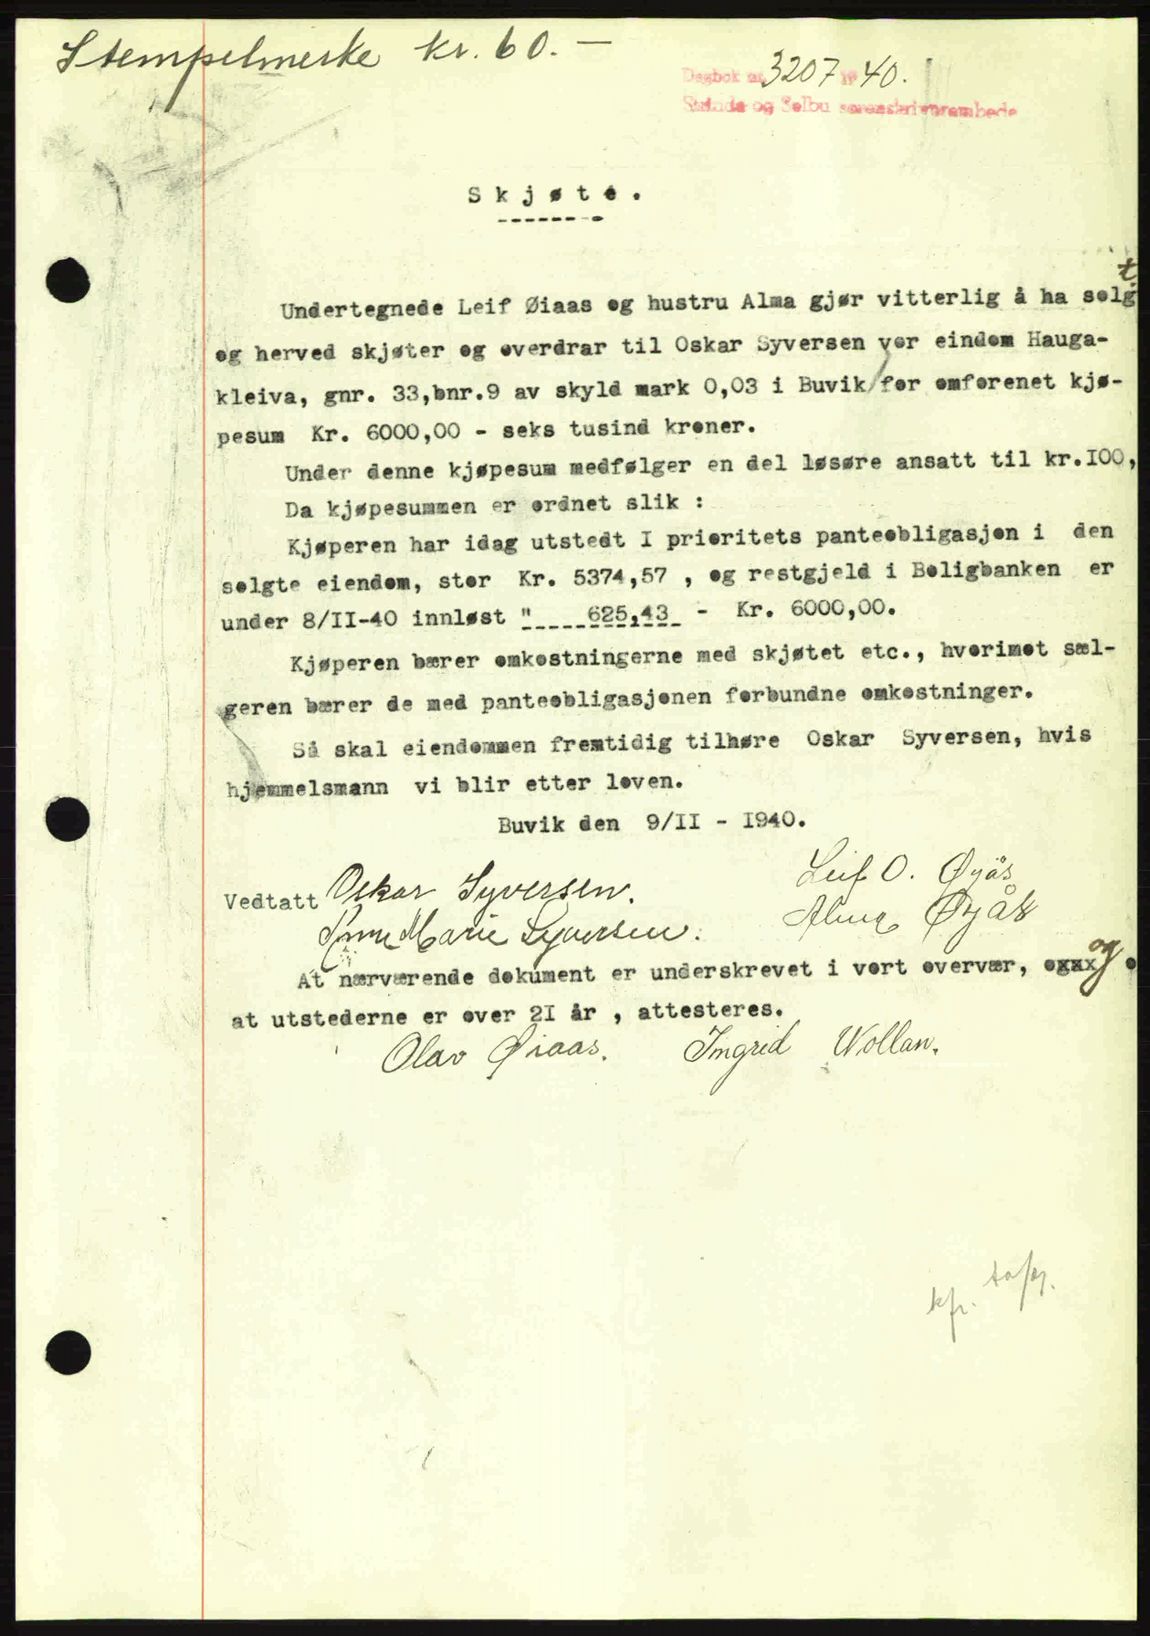 Stempelmerke kr. 60.—
Dagbok nr 3207 19 40.
Strinda og Selbu sorenskriverembede
Skjøte.
-------
Undertegnede Leif Øiaas og hustru Alma gjør vitterlig å ha solgt
og herved skjøter og overdrar til Oskar Syversen vor eindom Hauga-
kleiva, gnr. 33,bnr.9 av skyld mark 0,03 i Buvik/for omforenet kjø-
pesum Kr. 6000,00 - seks tusind kroner.
Under denne kjøpesum medfølger en del løsøre ansatt til kr.I00,
Da kjøpesummen er ordnet slik :
Kjøperen har idag utstedt I prioritets panteobligasjon i den
solgte eiendom, stor Kr. 5374,57 , og restgjeld i Boligbanken er
under 8/II-40 innløst " 625,43 - Kr. 6000,00.
Kjøperen bærer omkostningerne med skjøtet etc., hvorimot sæl-
geren bærer de med panteobligasjonen forbundne omkostninger.
Så skal eiendommen fremtidig tilhøre Oskar Syversen, hvis
hjemmelsmann vi blir etter loven.
Buvik den 9/II - I940.
Leif O. Øyås
Vedtatt Oskar Syversen.
Alma Øyås
Anne Marie Syversen.
At nærværende dokument er underskrevet i vort overvær, og
at utstederne er over 2I år , attesteres.
Olav Øiaas. Ingrid Wollan.
kfr.